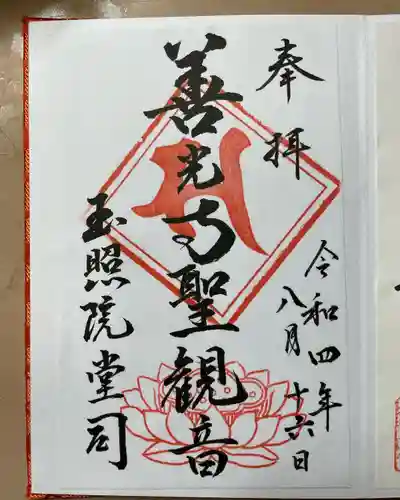 奉拝
令和四年
八月十六日
善光寺聖観音
玉照院堂司